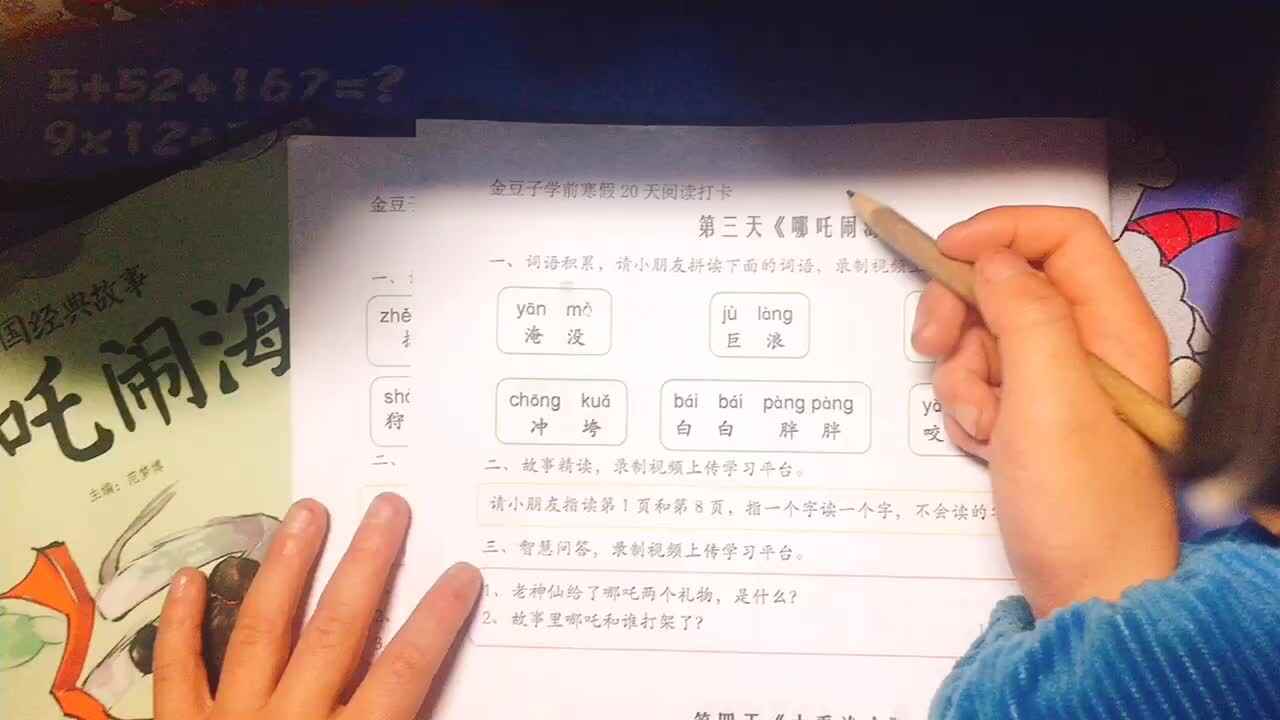 5+52+167=?
9x12
金豆子学前寒假20天阅读打卡
第三天《哪吒闹
一、词语积累，请小朋友拼读下面的词语，录制视频
yān mò
淹没
jù làng
巨浪
chōng kuǎ
冲垮
bái bái pàng pàng
白白胖胖
咬
二、故事精读，录制视频上传学习平台。
请小朋友指读第1页和第8页，指一个字读一个字，不会读的
三、智慧问答，录制视频上传学习平台。
1、老神仙给了哪吒两个礼物，是什么？
2、故事里哪吒和谁打架了？
金豆
一、
狩
二、
国经典故事
吒闹海
主编：范梦博